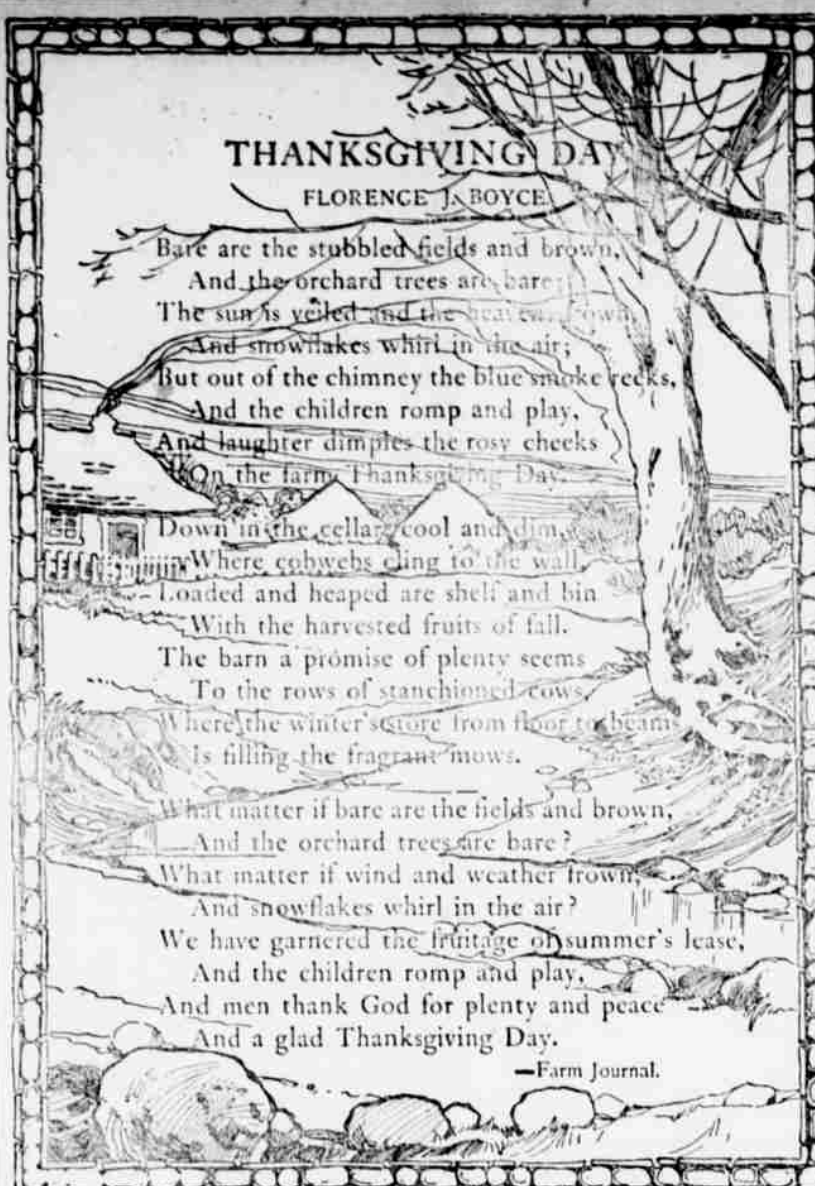 THANKSGIVING DAY
FLORENCE J. BOYCE
Bare are the stubbled fields and brown,
And the orchard trees are bare;
The sun is veiled and the heavens frown,
And snowflakes whirl in the air;
But out of the chimney the blue smoke reeks,
And the children romp and play,
And laughter dimples the rosy cheeks
On the farm Thanksgiving Day.
Down in the cellar, cool and dim,
Where cobwebs cling to the wall,
Loaded and heaped are shelf and bin
With the harvested fruits of fall.
The barn a promise of plenty seems
To the rows of stanchioned cows,
Where the winter's store from floor to beams
Is filling the fragrant mows.
What matter if bare are the fields and brown,
And the orchard trees are bare?
What matter if wind and weather frown,
And snowflakes whirl in the air?
We have garnered the fruitage of summer's lease,
And the children romp and play,
And men thank God for plenty and peace
And a glad Thanksgiving Day.
—Farm Journal.